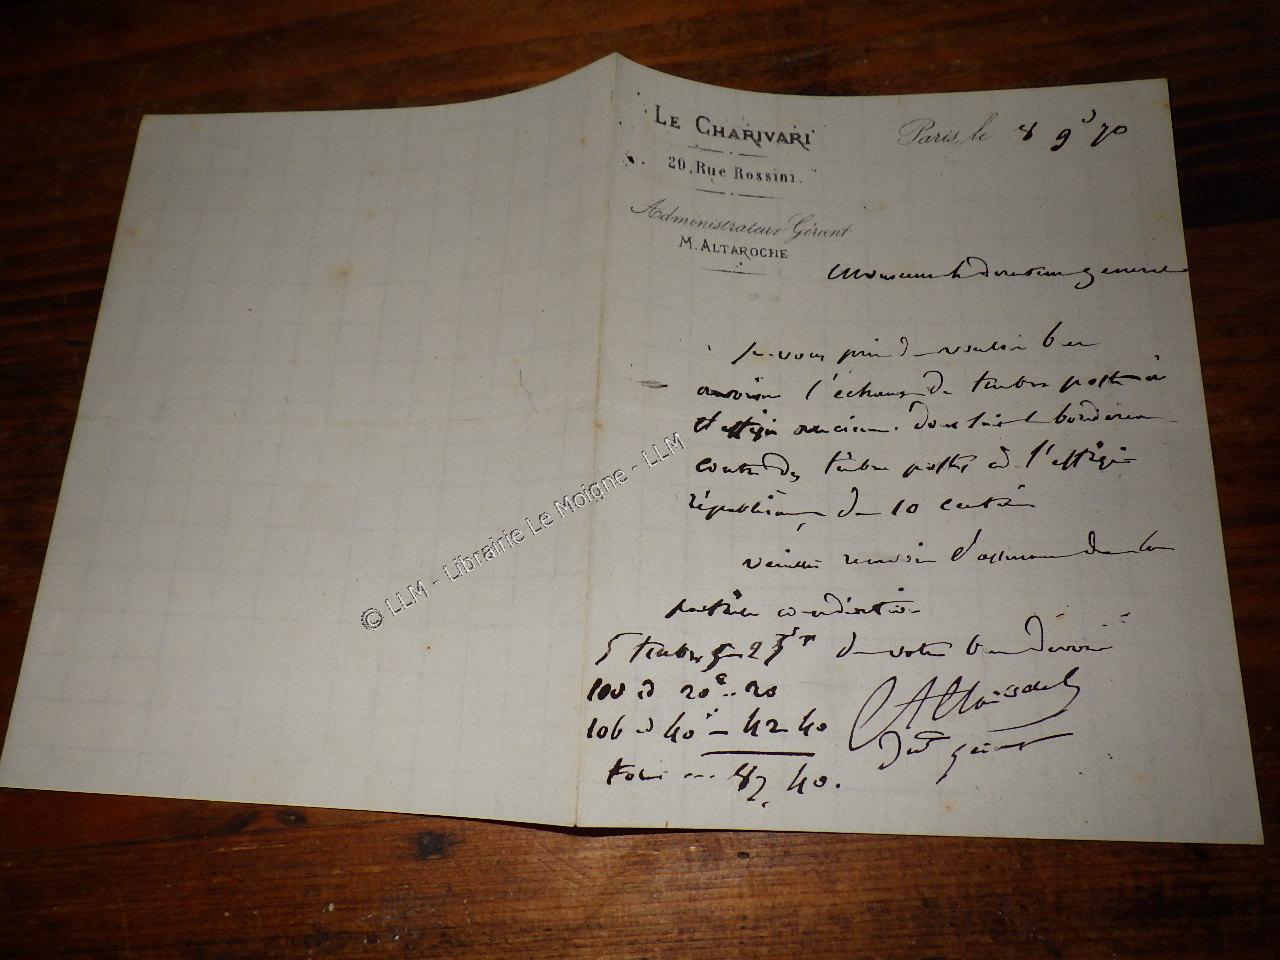 LE CHARIVARI
20, Rue Rossini.
Administrateur Gérant
M. ALTAROCHE
Paris, le 8 9 70
Monsieur le directeur général
Je vous prie de vouloir bien
l'échange de timbres poste à
l'effigie ancienne dont suit le bordereau
contre des timbres poste à l'effigie
républicaine de 10 centimes
veuillez recevoir l'assurance de la
parfaite considération
5 timbres 5
de votre bien dévoué
100 d 20c .. 20
106 d 40 — 42 40
total ... 87, 40.
Altaroche
gérant
© LLM - Librairie Le Moigne - LLM